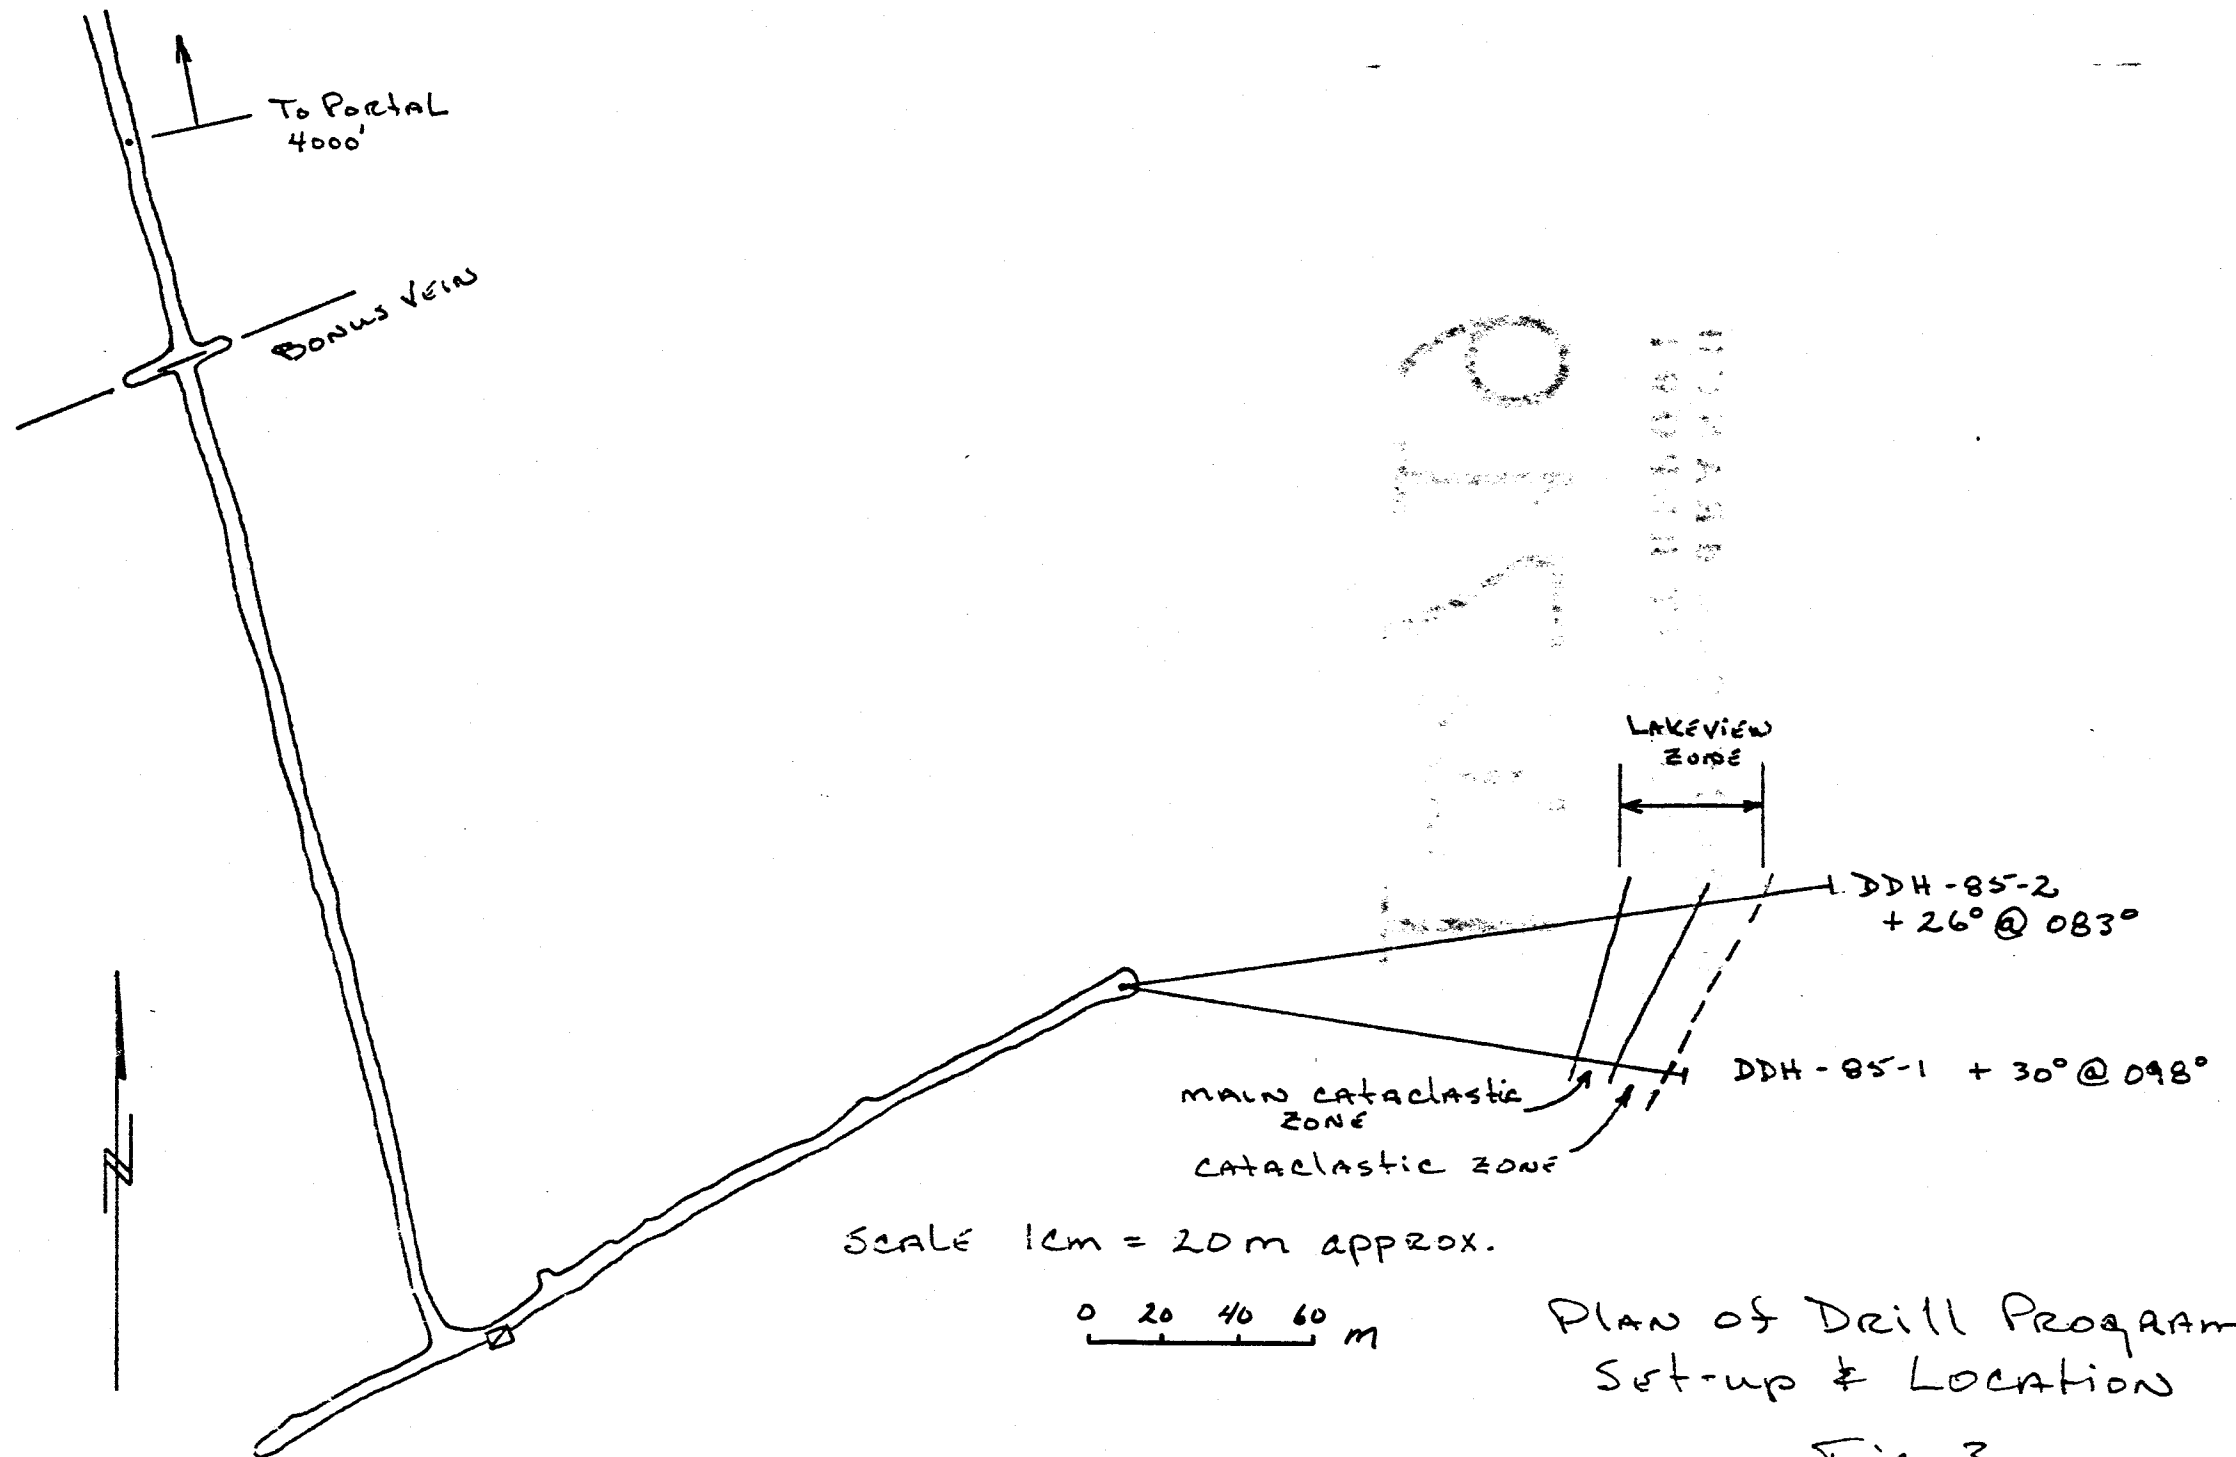 To Portal
4000'
BONUS VEIN
LAKEVIEW
ZONE
DDH-85-2
+ 26° @ 083°
DDH-85-1 + 30° @ 098°
MAIN CATACLASTIC
ZONE
CATACLASTIC ZONE
SCALE 1cm = 20m approx.
0 20 40 60 m
N
PLAN of Drill PROGRAM
Set-up & LOCATION